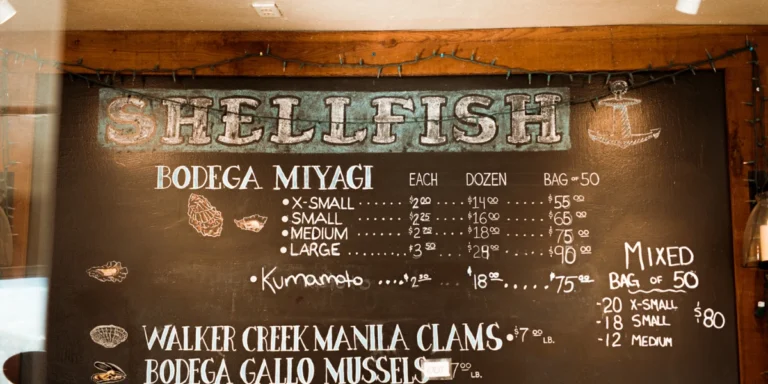 SHELLFISH
BODEGA MIYAGI EACH DOZEN BAG OF 50
• X-SMALL ...... $2.00 ..... $14.00 ..... $55.00
• SMALL ........ $2.25 ..... $16.00 ..... $65.00
• MEDIUM ....... $2.25 ..... $18.00 ..... $75.00
• LARGE ........ $3.50 ..... $28.00 ..... $90.00
• Kumamoto ..... $2.50 $18.00 ..... $75.00
MIXED
BAG OF 50
-20 X-SMALL
-18 SMALL $80
-12 MEDIUM
WALKER CREEK MANILA CLAMS • $7.00 LB.
BODEGA GALLO MUSSELS 7.00 LB.